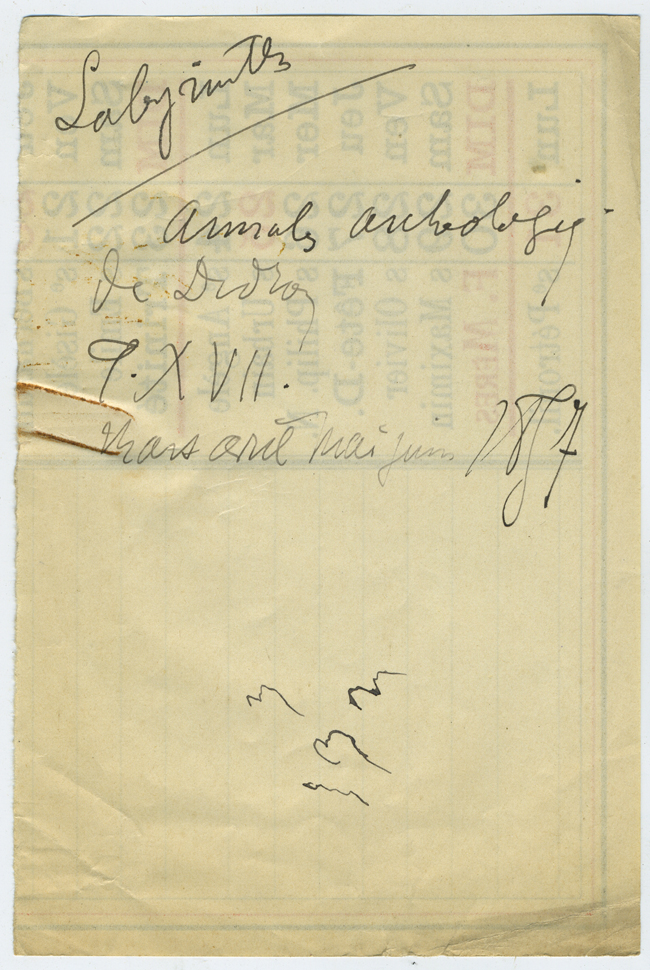 Labyrinthes
Annales archeologiq
de Didron
T. XVII.
Mars avril Mai juin 1857